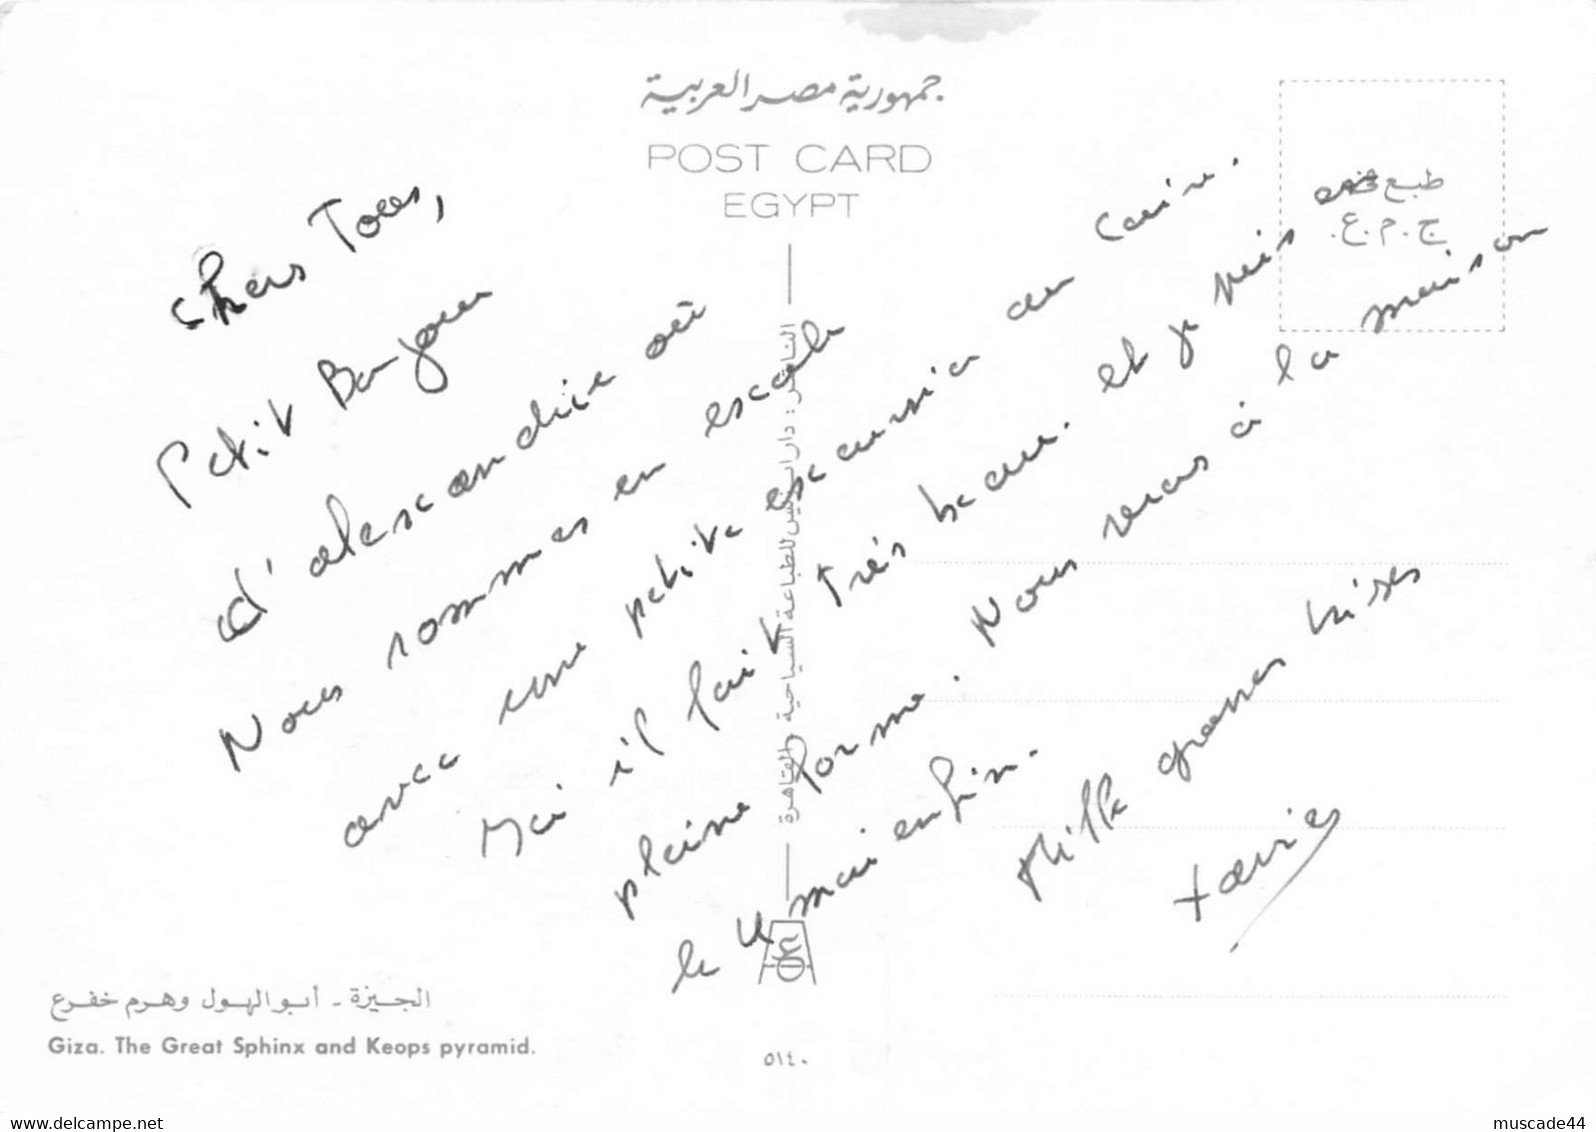 جمهورية مصر العربية
POST CARD
EGYPT
طبع في
ج.م.ع.
Chers Tous,
Petit Bonjour
d'alexandrie où
Nous sommes en escale
avec une petite excursion au Caire.
Ici il fait très beau. et je suis en
pleine forme. Nous serons à la maison
le 4 mai enfin.
Mille grosses bises
الناشر : دار للطباعة السياحية والقاهرة
الجيزة - أبو الهول وهرم خفرع
Giza. The Great Sphinx and Keops pyramid.
٥١٤٠
www.delcampe.net
muscade44